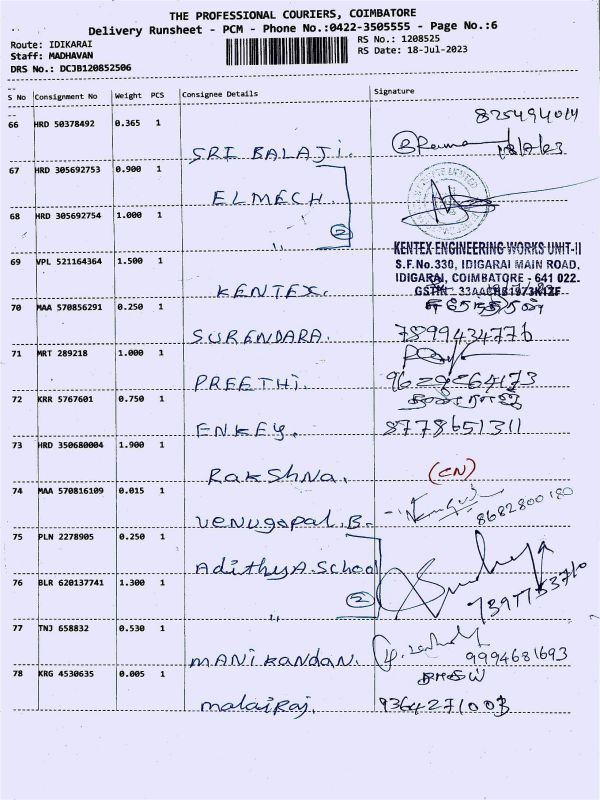 THE PROFESSIONAL COURIERS, COIMBATORE
Delivery Runsheet - PCM - Phone No.:0422-3505555 - Page No.:6
Route: IDIKARAI
RS No.: 1208525
Staff: MADHAVAN
RS Date: 18-Jul-2023
DRS No.: DCJB120852506
S No Consignment No Weight PCS Consignee Details Signature
66 HRD 50378492 0.365 1
SRI BALAJI.
18/7/23
67 HRD 305692753 0.900 1
ELMECH.
68 HRD 305692754 1.000 1
" 2
KENTEX ENGINEERING WORKS UNIT-II
S.F.No.330, IDIGARAI MAIN ROAD,
IDIGARAI, COIMBATORE - 641 022.
69 VPL 521164364 1.500 1
KENTEX.
70 MAA 570856291 0.250 1
SURENDARA. 7899434776
71 MRT 289218 1.000 1
PREETHI.
72 KRR 5767601 0.750 1
ENKEY. 8778651311
73 HRD 350680004 1.900 1
RAKSHNA. (CN)
74 MAA 570816109 0.015 1
VENUGOPAL.B. 8682800180
75 PLN 2278905 0.250 1
AdithyA.School
76 BLR 620137741 1.300 1
" 2
77 TNJ 658832 0.530 1
MANIKANDAN. 9994681693
78 KRG 4530635 0.005 1
malaiRaj. 9364271003